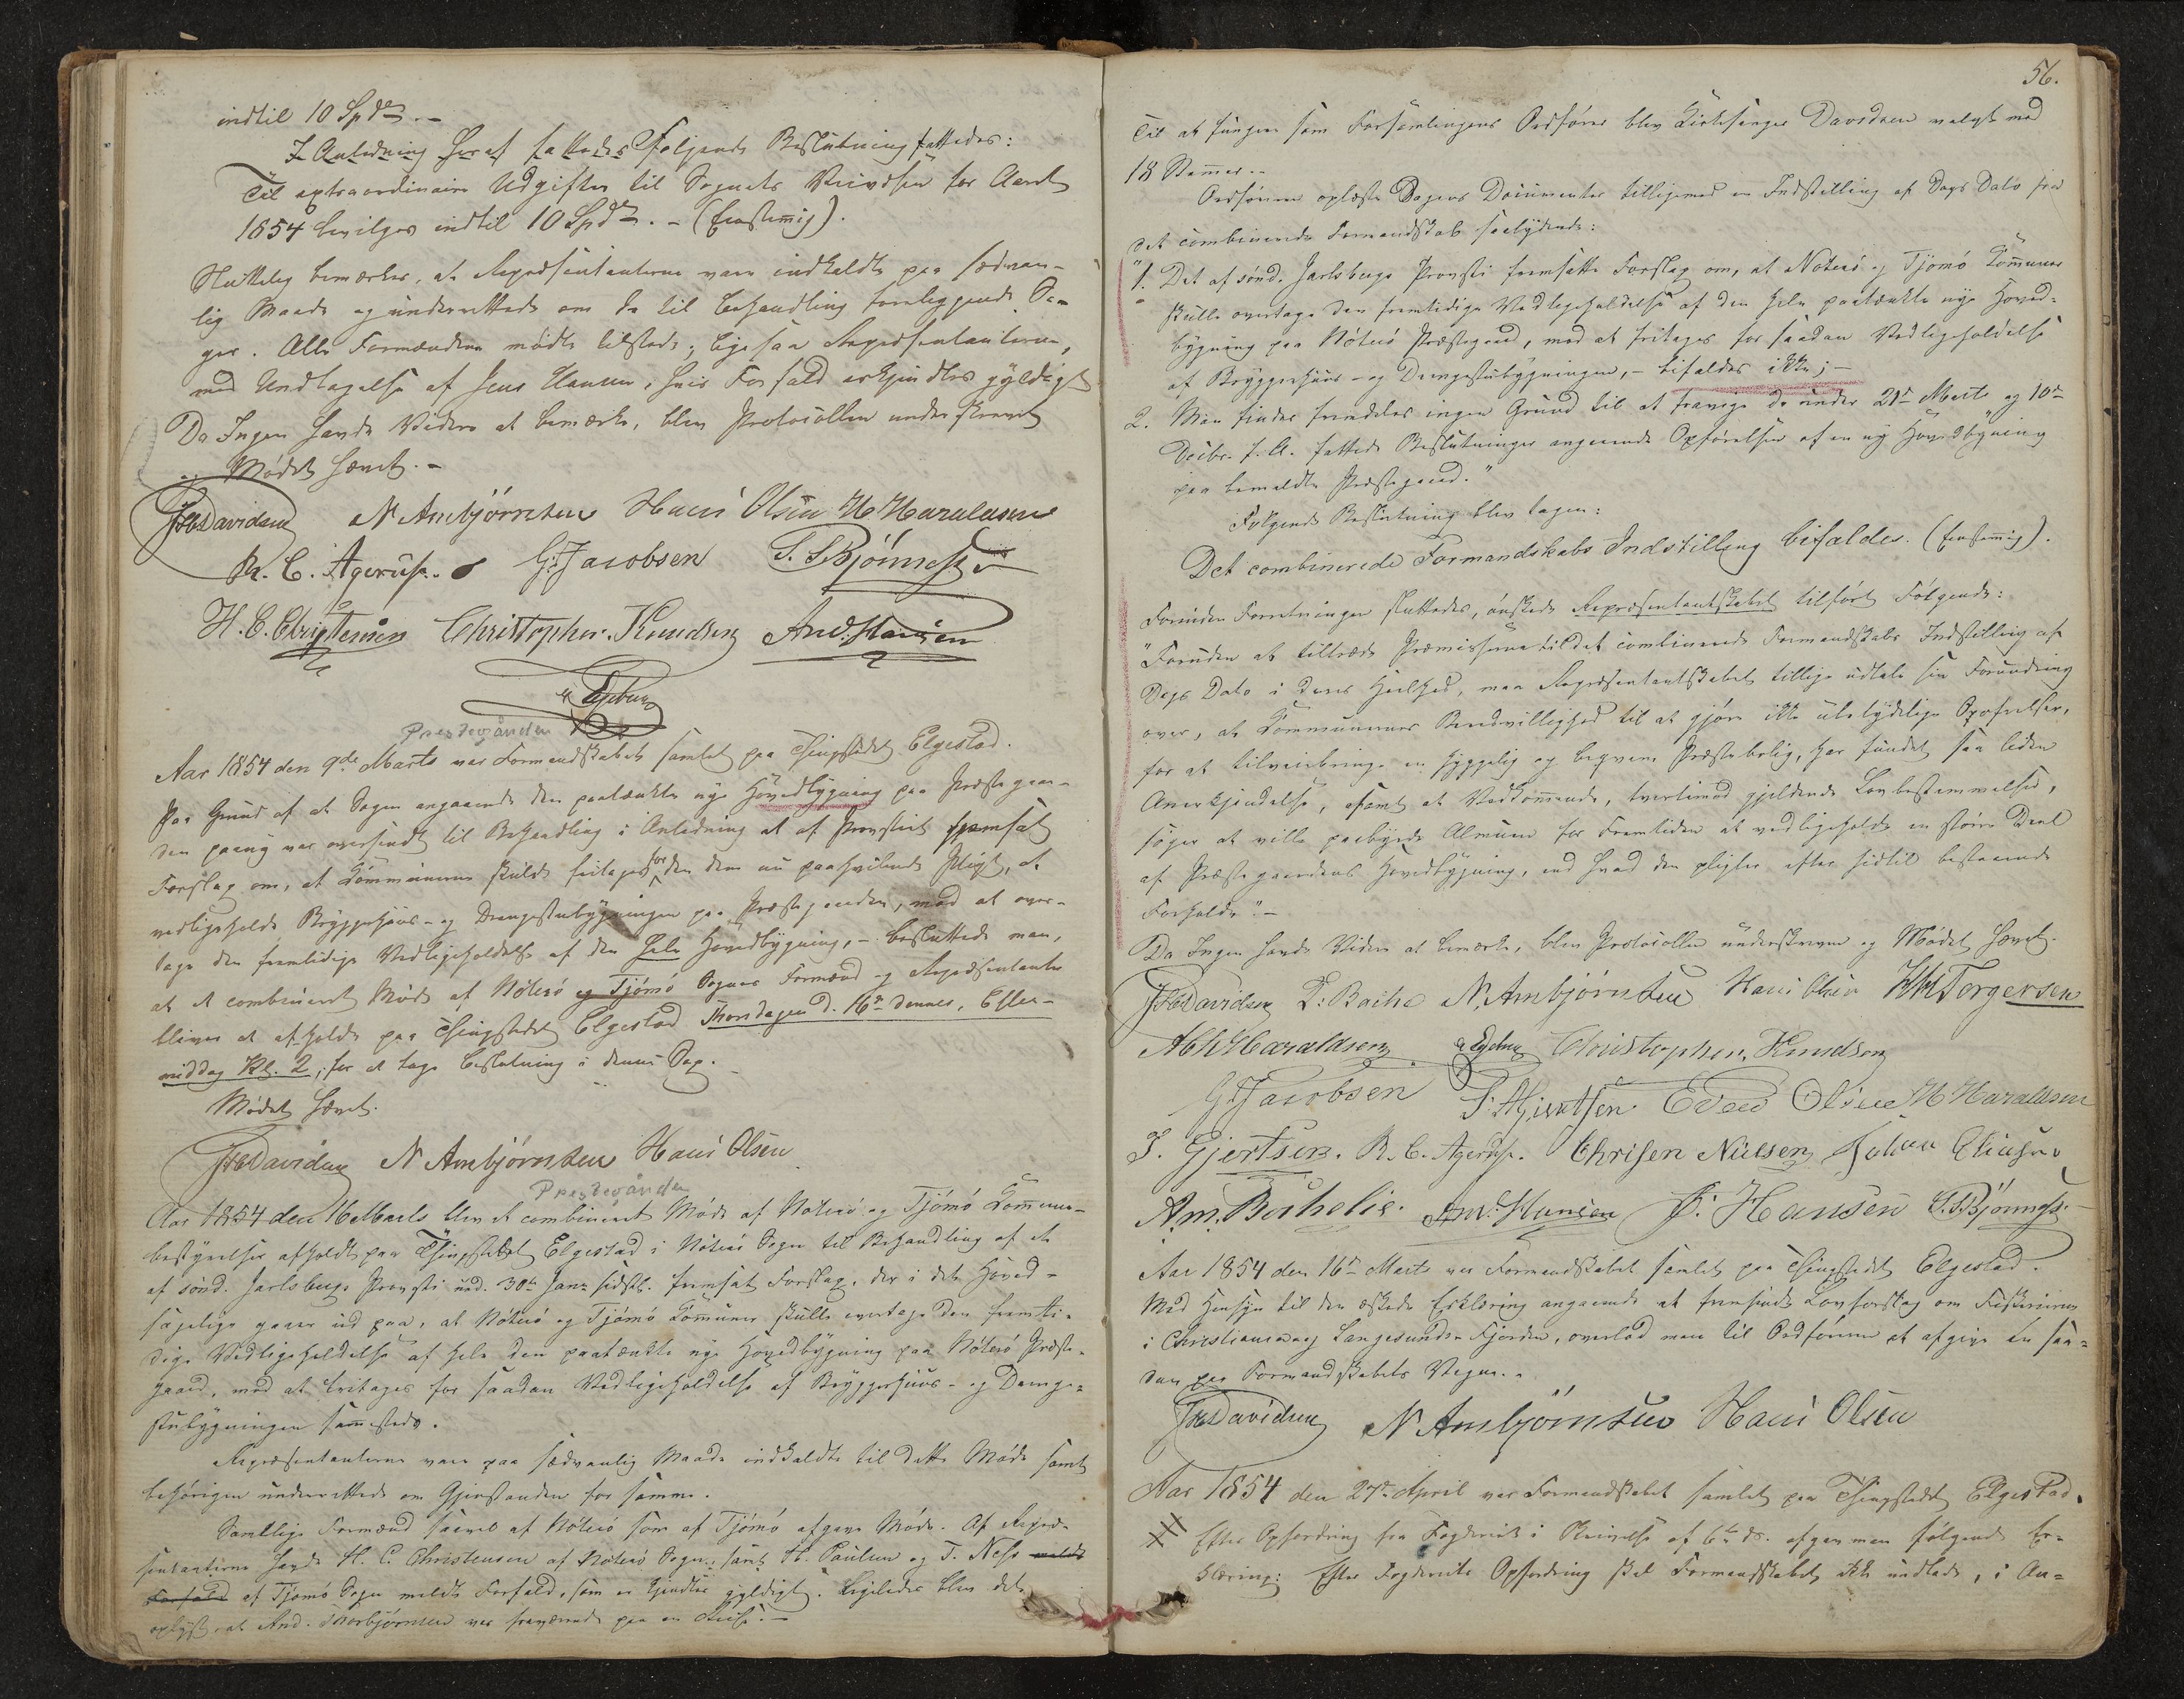 indtil 10 Spd.–
I Anledning heraf fattedes Følgende Beslutning fattedes:
Til extraordinaire Udgifter til Sognets Veivæsen for Aaret
1854 bevilges indtil 10 Spd. – (Eenstemig).
Sluttelig bemærkes, at Repræsentanterne vare indkaldte paa sædvan-
lig Maade og underrettede om de til Behandling foreliggende Sa-
ger. Alle Formændene mødte tilstede; ligesaa Repræsentanterne,
med Undtagelse af Jens Hansen, hvis Forfald erkjendtes gyldigt
Da Ingen havde Videre at bemærke, blev Protocollen underskrevet
og Mødet hævet.–
Davidsen N Ambjørnsen Hans Olsen H Haraldsen
R. C. Agerup. G. Jacobsen S. Bjønness
H. C. Christensen Christopher. Knudsen And. Hansen
Prestegården
Aar 1854 den 9de Marts var Formandskabet samlet paa Thingstedet Elgestad.
Paa Grund af at Sagen angaaende den paatænkte nye Hovedbygning paa Præstegaar-
den paany var oversendt til Behandling i Anledning et af Provstiet fremsat
Forslag om, at Kommunerne skulde fritages for den dem nu paahvilende Pligt, at
vedligeholde Bryggerhuus- og Drengestubygningen paa Præstegaarden, mod at over-
tage den fremtidige Vedligeholdelse af den hele Hovedbygning, – besluttede man,
at et combineret Møde af Nøterø og Tjømø Sognes Formænd og Repræsentanter
bliver at afholde paa Thingstedet Elgestad Thorsdagen d. 16de dennes, Efter-
middag Kl. 2, for at tage Beslutning i denne Sag.
Mødet hævet.
Davidsen N Ambjørnsen Hans Olsen
Prestegården
Aar 1854 den 16 Marts blev et combineret Møde af Nøterø og Tjømø Kommune-
bestyrelser afholdt paa Thingstedet Elgestad i Nøterø Sogn til Behandling af et
af sønd. Jarlsbergs Provsti und. 30te Janr sidstl. fremsat Forslag, der i det Hoved-
sagelige gaaer ud paa, at Nøterø og Tjømø Kommuner skulle overtage den fremti-
dige Vedligeholdelse af hele den paatænkte nye Hovedbygning paa Nøterø Præste-
gaard, mod at fritages for saadan Vedligeholdelse af Bryggerhuus- og Drenge-
stubygningen sammesteds.
Repræsentanterne vare paa sædvanlig Maade indkaldte til dette Møde samt
behørigen underrettede om Gjenstanden for samme.
Samtlige Formænd saavel af Nøterø som af Tjømø afgave Møde. Af Repræ-
sentanterne havde H. C. Christensen af Nøterø Sogn, samt H. Paulsen og T. Næss meldt
Forfald af Tjømø Sogn meldt Forfald, som er kjendtes gyldigt. Ligeledes blev det
oplyst at And. Thorbjørnsen var fraværende paa en Reise.–
56.
Til at fungere som Forsamlingens Ordfører blev Kirkesanger Davidsen valgt med
18 Stemmer.–
Ordføreren oplæste Sagens Documenter tilligemed en Indstilling af Dags Dato fra
det combinerede Formandskab saalydende:
"1. Det af sønd. Jarlsbergs Provsti fremsatte Forslag om, at Nøterø og Tjømø Kommuner
skulle overtage den fremtidige Vedligeholdelse af den hele paatænkte nye Hoved-
bygning paa Nøterø Præstegaard, mod at fritages for saadan Vedligeholdelse
af Bryggerhuus- og Drengestubygningen, – bifaldes ikke; –
2. Man finder fremdeles ingen Grund til at fravige de under 21de Marts og 10de
Decbr. f. A. fattede Beslutninger angaaende Opførelsen af en ny Hovedbygning
paa bemeldte Præstegaard."
Følgende Beslutning blev tagen:
Det combinerede Formandskabs Indstilling bifaldes. (Eenstemig).
Forinden Forretningen sluttedes, ønskede Repræsentantskabet tilført Følgende:
"Foruden at tiltræde Præmisserne til det combinerede Formandskabs Indstilling af
Dags Dato i deres Heelhed, maa Repræsentantskabet tillige udtale sin Forundring
over, at Kommunernes Beredvillighed til at gjøre ikke ubetydelige Opofrelser,
for at tilveiebringe en hyggelig og beqvem Præstebolig, har fundet saa liden
Anerkjendelse, samt at Vedkommende, tvertimod gjeldende Lovbestemmelser,
søger at ville paabyrde Almuen for Fremtiden at vedligeholde en større Deel
af Præstegaardens Hovedbygning, end hvad den pligter efter hidtil bestaaende
Forholde".–
Da Ingen havde Videre at bemærke, blev Protocollen underskreven og Mødet hævet.
Davidsen L: Bache N. Ambjørnsen Hans Olsen Torgersen
Haraldsen Christopher. Knudsen
G Jacobsen S. Gjertsen Even Olsen H Haraldsen
S. Gjertsen. R. C. Agerup. Chrisen Nielsen Johan Eliasen
And. Hansen J. Hansen S. Bjønness
Aar 1854 den 16de Marts var Formandskabet samlet paa Thingstedet Elgestad.
Med Hensyn til den æskede Erklæring angaaende et fremsendt Lovforslag om Fiskerierne
i Christiania og Langesunds Fjorden, overlod man til Ordføreren at afgive en saa-
dan paa Formandskabets Vegne.–
Davidsen N Ambjørnsen Hans Olsen
Aar 1854 den 27de April var Formandskabet samlet paa Thingstedet Elgestad.
Efter Opfordring fra Fogderiet i Skrivelse af 6te ds. afgav man følgende Er-
klæring: Efter Fogderiets Opfordring skal Formandskabet ikke undlade, i An-